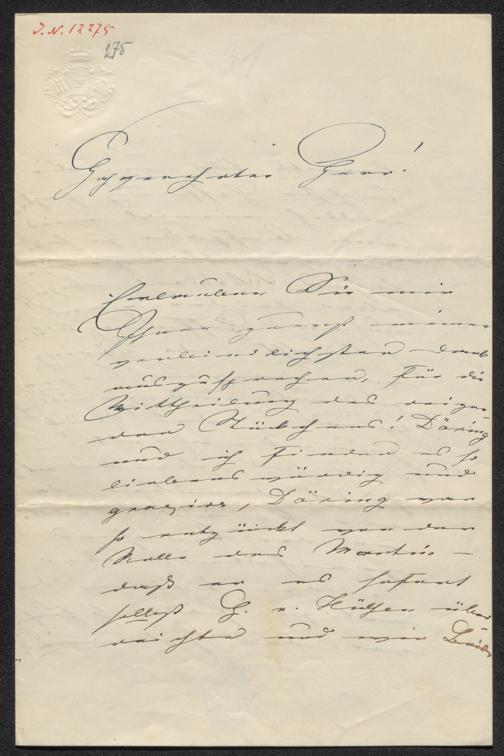 J. N. 12275
275
Hochgeehrter Herr!
Erlauben Sie mir
Ihnen zuerst meinen
verbindlichsten Dank
auszusprechen, für die
Mittheilung des reizen
den Stückchens! Döring
und ich finden es so
liebenswürdig und
graziös, Döring war
so entzückt von der
Rolle des Martin –
daß er es sofort
selbst H. v. Hülsen über
reichte und wir Beide